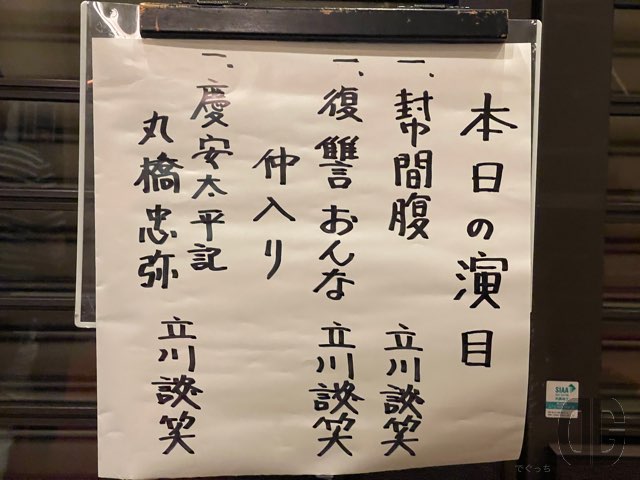 本日の演目
一、幇間腹 立川談笑
一、復讐おんな 立川談笑
仲入り
一、慶安太平記
丸橋忠弥 立川談笑
SIAA
でぐっち